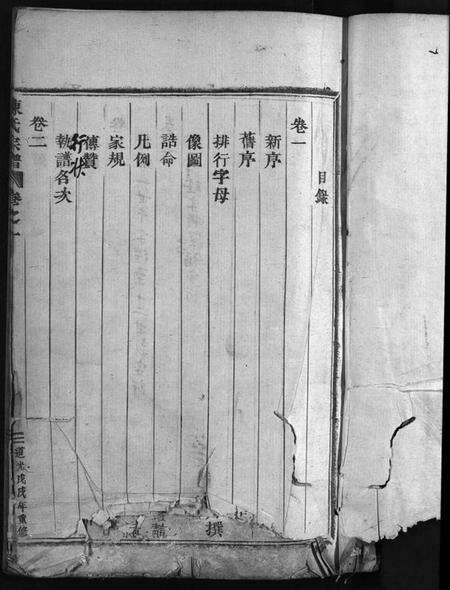 目錄
卷一
新序
舊序
排行字母
像圖
誥命
凡例
家規
傳贊
行狀
執譜名次
卷二
陳氏宗譜
卷之一
道光戊戌年重修
撰